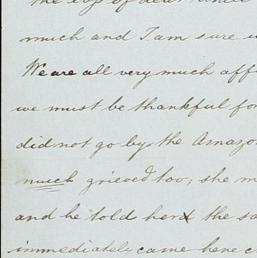 the loss of dear Uncle
much and I am sure
We are all very much
we must be thankful for
did not go by the Amazon
much grieved too; she
and he told her the
immediately came here